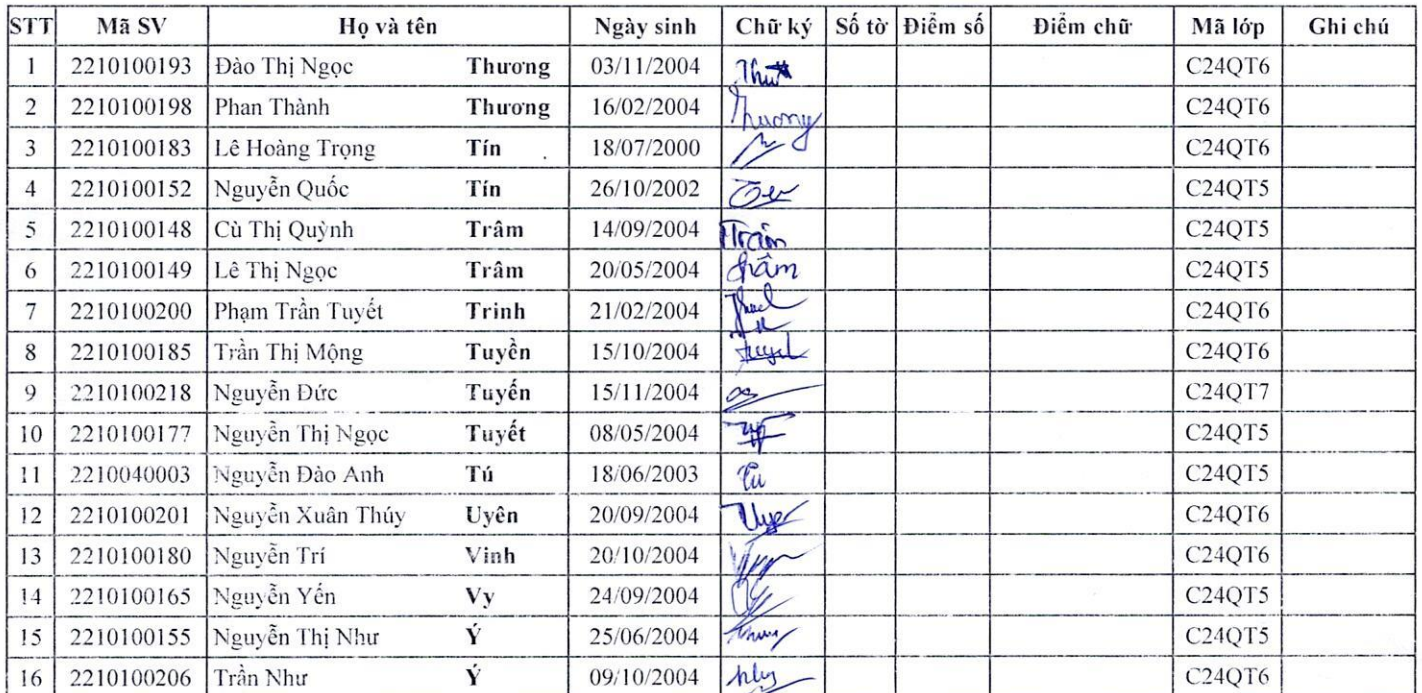 STT Mã SV Họ và tên Ngày sinh Chữ ký Số tờ Điểm số Điểm chữ Mã lớp Ghi chú
1 2210100193 Đào Thị Ngọc Thương 03/11/2004 C24QT6
2 2210100198 Phan Thành Thương 16/02/2004 Thuong C24QT6
3 2210100183 Lê Hoàng Trọng Tín 18/07/2000 C24QT6
4 2210100152 Nguyễn Quốc Tín 26/10/2002 C24QT5
5 2210100148 Cù Thị Quỳnh Trâm 14/09/2004 Trâm C24QT5
6 2210100149 Lê Thị Ngọc Trâm 20/05/2004 C24QT5
7 2210100200 Phạm Trần Tuyết Trinh 21/02/2004 C24QT6
8 2210100185 Trần Thị Mộng Tuyền 15/10/2004 C24QT6
9 2210100218 Nguyễn Đức Tuyến 15/11/2004 C24QT7
10 2210100177 Nguyễn Thị Ngọc Tuyết 08/05/2004 C24QT5
11 2210040003 Nguyễn Đào Anh Tú 18/06/2003 Tú C24QT5
12 2210100201 Nguyễn Xuân Thúy Uyên 20/09/2004 C24QT6
13 2210100180 Nguyễn Trí Vinh 20/10/2004 C24QT6
14 2210100165 Nguyễn Yến Vy 24/09/2004 C24QT5
15 2210100155 Nguyễn Thị Như Ý 25/06/2004 C24QT5
16 2210100206 Trần Như Ý 09/10/2004 C24QT6